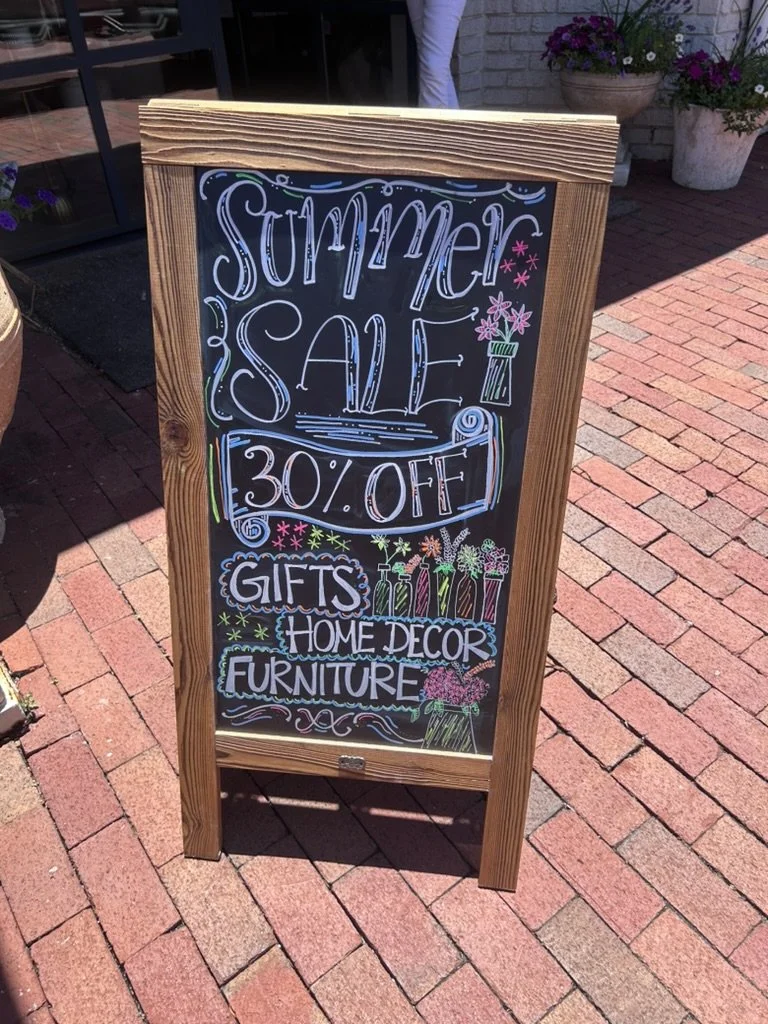 Summer
SALE
30% OFF
GIFTS
HOME DECOR
FURNITURE